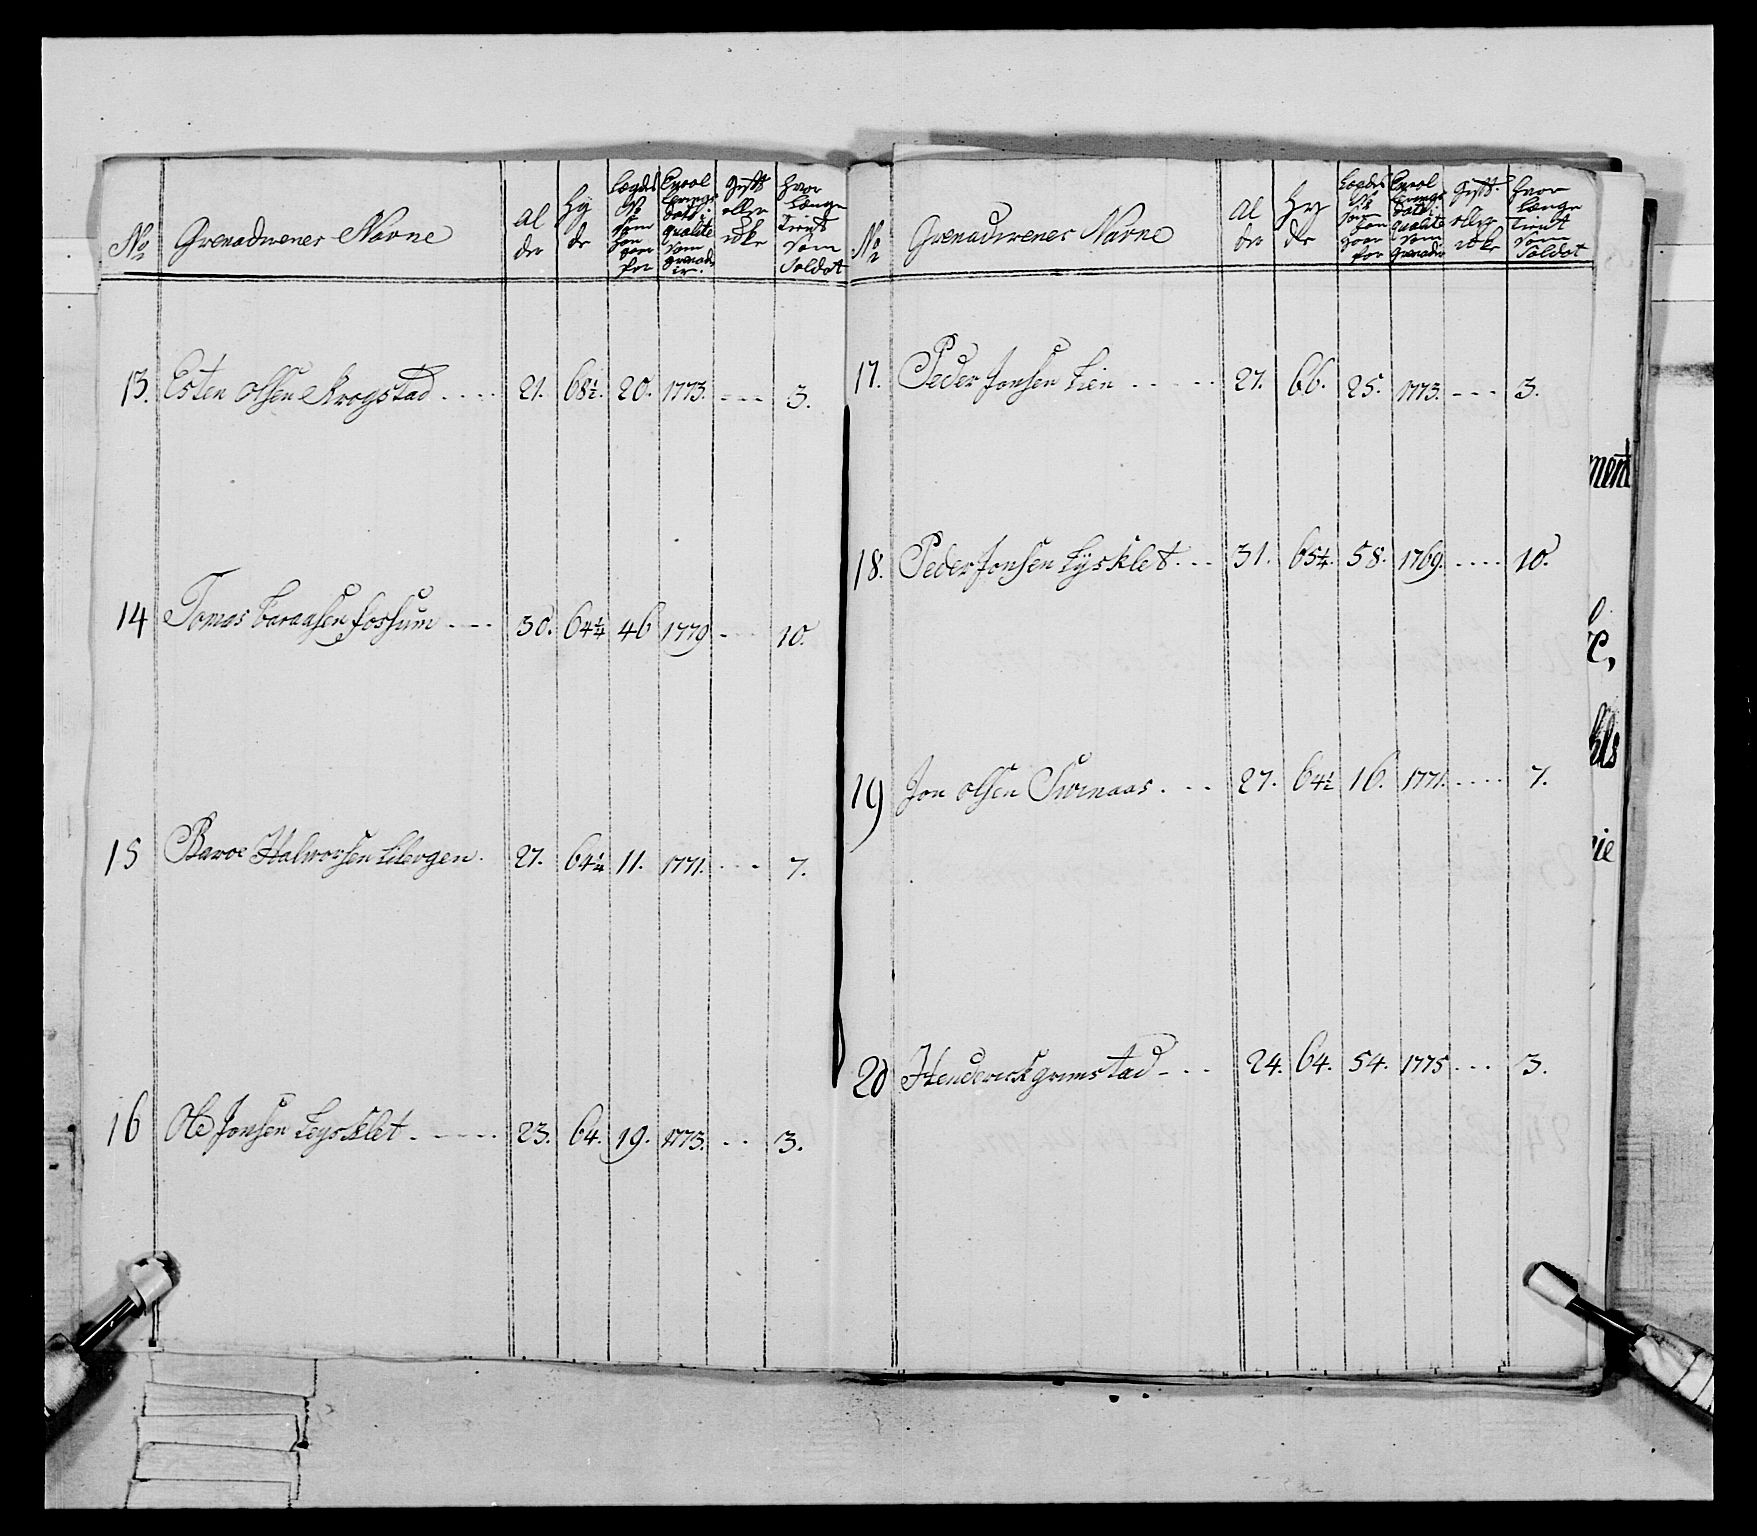 No Grenadirenes Navne Al der Hy de Lægdets No som han gaar for Enroolerings Datt: i qualite som grenadeir. Gift eller icke Hvor Længe Tient som Soldat
13. Esten Olsen Krogstad .... 21. 68½. 20. 1773. --- 3.
14 Tomas Larassen fossum --- 30. 64¼ 46 1770 --- 10.
15 Baroe Halworsen Libergen. 27. 64¼ 11. 1771. --- 7.
16 Ole Jonsen Leysklet ..... 23. 64. 19. 1773. -- 3.
No Grenadirenes Navne Al der Hy de Lægdets No som han gaar for Enroolerings Datt: i qualite som Grenader Gift eller icke Hvor Længe Tient som Soldat
17. Peder Jonsen Lien ..... 27. 66. 25. 1773. --- 3.
18. Peder Jonsen Lÿsklet ... 31. 65¼. 58. 1769. .... 10.
19 Jon Olsen Surnaas ... 27. 64½ 16. 1771. .... 7.
20 Henderick grimstad ... 24. 64. 54. 1775 ... 3.